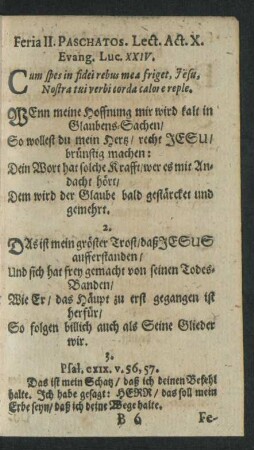 Feria II. PASCHATOS. Lect. Act. X.
Evang. Luc. XXIV.
Cum spes in fidei rebus mea friget, Jesu,
Nostra tui verbi corda calore reple.
WEnn meine Hoffnung mir wird kalt in
Glaubens-Sachen/
So wollest du mein Hertz/ recht JESU/
brünstig machen:
Dein Wort hat solche Krafft/wer es mit An-
dacht hört/
Dem wird der Glaube bald gestärcket und
gemehrt.
2.
DAs ist mein gröster Trost/daß JESUS
aufferstanden/
Und sich hat frey gemacht von seinen Todes-
Banden/
Wie Er/ das Häupt zu erst gegangen ist
herfür/
So folgen billich auch als Seine Glieder
wir.
3.
Psal. cxix. v. 56, 57.
Das ist mein Schatz/ daß ich deinen Befehl
halte. Ich habe gesagt: HERR/ das soll mein
Erbe seyn/ daß ich deine Wege halte.
B 6 Fe-